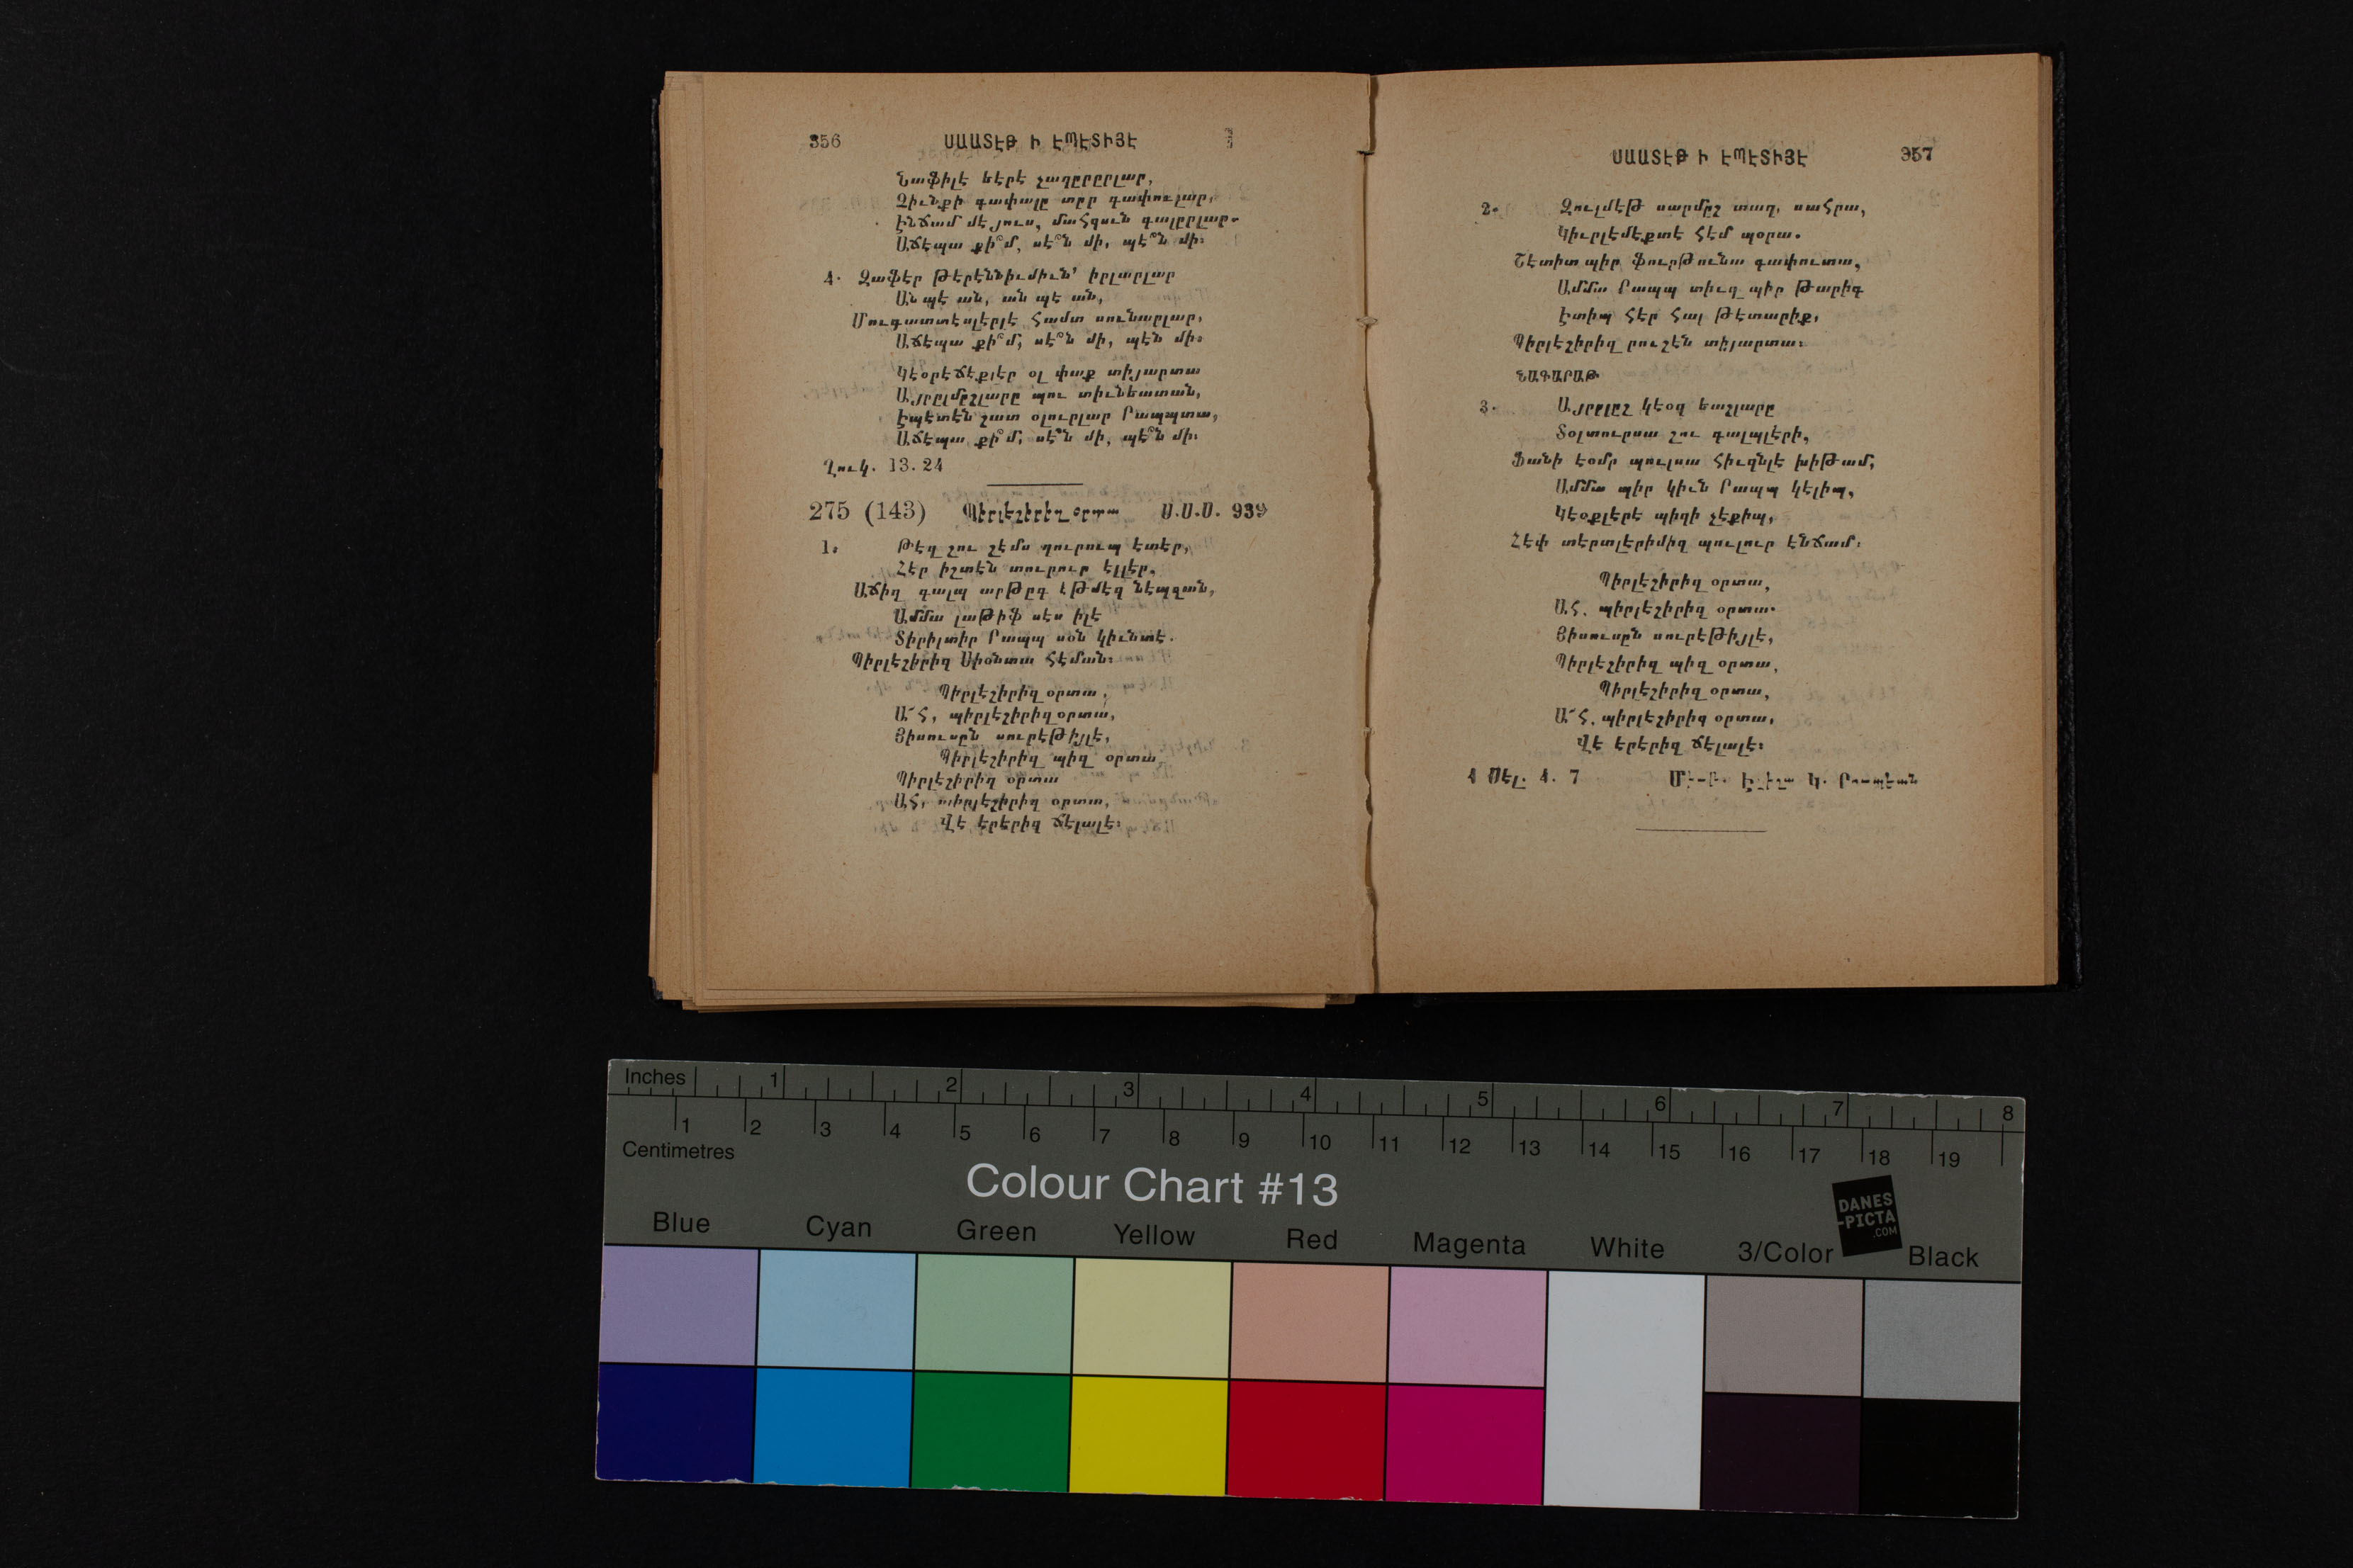 356 ՍԱԱՏԷԹ Ի ԷՊԷՏԻՅԷ
Նաֆիլէ եէրէ չաղըրըրլար,
Զիւնքի գափալը տըր գափուլար,
Էնճամ մէյուս, մահզուն գալըրլար.
Աճէպա քի՞մ, սէ՞ն մի, պէ՞ն մի։
4. Զաֆէր թէրէննիւմիւն՝ իրլարլար
Ան պէ ան, ան պե ան,
Մուգատտէսլերլէ համտ սունարլար,
Աճէպա քի՞մ, սէ՞ն մի, պէն մի։
Կէօրէճէքլեր օլ փաք տիյարտա
Այրըլմըշլարը պու տիւնեատան,
Էպէտէն շատ օլուրլար Րապպտա,
Աճէպա քի՞մ, սէ՞ն մի, պէ՞ն մի։
Ղուկ. 13. 24
275 (143) Պիրլէշիրիզ օրտա Ս.Ս.Ս. 939
1. Թէզ շու շէմս ղուրուպ էտէր,
Հէր իշտէն տուրուր էլլէր,
Աճիզ գալպ արթըգ էթմէզ նէպզան,
Ամմա լաթիֆ սէս իլէ
Տիրիլտիր Րապպ սօն կիւնտէ.
Պիրլէշիրիզ Սիօնտա հէման։
Պիրլէշիրիզ օրտա,
Ա՜հ, պիրլէշիրիզ օրտա,
Յիսուսըն սուրէթիյլէ,
Պիրլէշիրիզ պիզ օրտա
Պիրլէշիրիզ օրտա
Ահ, պիրլէշիրիզ օրտա,
Վէ երէրիզ ճէլալէ։
ՍԱԱՏԷԹ Ի ԷՊԷՏԻՅԷ 357
2. Զուլմէթ սարմըշ տաղ, սահրա,
Կիւրլէմէքտէ հէմ պօրա.
Շէտիտ պիր ֆուրթունա գափուտա,
Ամմա Րապպ տիւզ պիր թարիգ
Էտիպ հէր հալ թէտարիք,
Պիրլէշիրիզ րուշէն տիյարտա։
ՆԱԳԱՐԱԹ
3. Այրըլըշ կէօզ եաշլարը
Տօլտուրսա շու գալպլէրի,
Ֆանի էօմր պուլսա հիւզնլէ խիթամ,
Ամմա պիր կիւն Րապպ կէլիպ,
Կէօքլէրէ պիզի չէքիպ,
Հէփ տէրտլէրիմիզ պուլուր էնճամ։
Պիրլէշիրիզ օրտա,
Ահ. պիրլէշիրիզ օրտա.
Յիսուսըն սուրէթիյլէ,
Պիրլէշիրիզ պիզ օրտա,
Պիրլէշիրիզ օրտա,
Ա՜հ. պիրլէշիրիզ օրտա,
Վէ երէրիզ ճէլալէ։
4. 7
Inches 1 2 3 4 5 6 7 8
1 2 3 4 5 6 7 8 9 10 11 12 13 14 15 16 17 18 19
Centimetres
Colour Chart #13
DANES
-PICTA
.COM
Blue Cyan Green Yellow Red Magenta White 3/Color Black